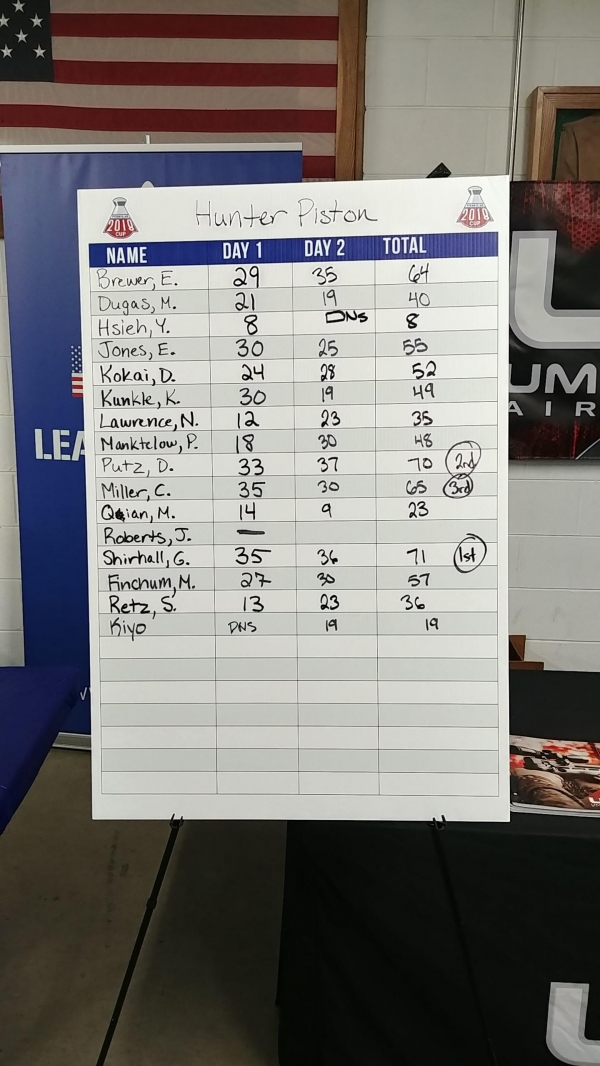 2018
CUP
Hunter Piston
2018
CUP
NAME DAY 1 DAY 2 TOTAL
Brewer, E. 29 35 64
Dugas, M. 21 19 40
Hsieh, Y. 8 DNS 8
Jones, E. 30 25 55
Kokai, D. 24 28 52
Kunkle, K. 30 19 49
Lawrence, N. 12 23 35
Manktelow, P. 18 30 48
Putz, D. 33 37 70 2nd
Miller, C. 35 30 65 3rd
Qian, M. 14 9 23
Roberts, J. —
Shirhall, G. 35 36 71 1st
Finchum, M. 27 30 57
Retz, S. 13 23 36
Kiyo DNS 19 19
LEA
UM
AIR